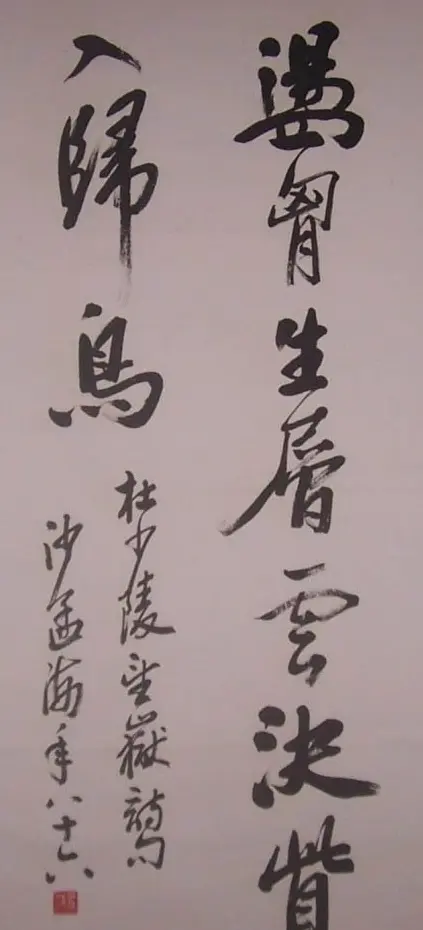 盪胷生層云決眥
入歸鳥
杜少陵望嶽詩句
沙孟海年八十六